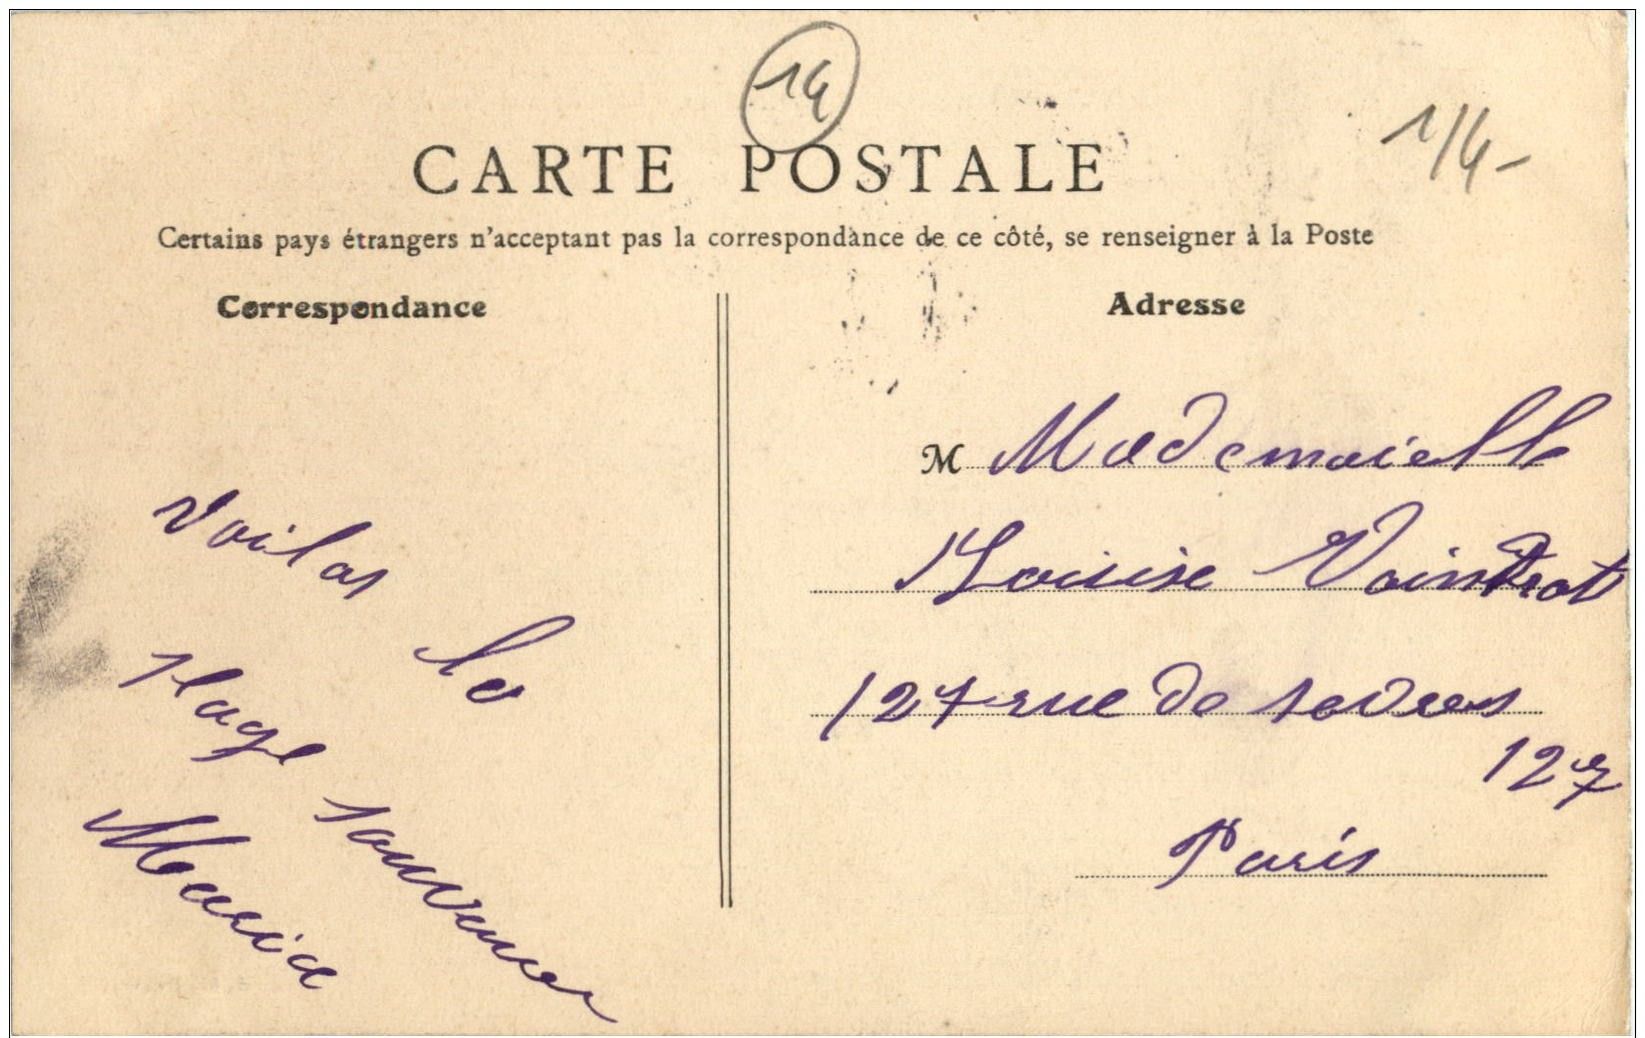 14
1/4-
CARTE POSTALE
Certains pays étrangers n'acceptant pas la correspondance de ce côté, se renseigner à la Poste
Correspondance
Voila la
plage souvenir
Maria
Adresse
M Mademaielle
Louise
127 rue de sevres
127
Paris